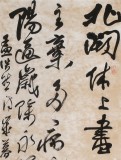 北闕休上書
主棄多病
陽逼歲除永
孟浩歲暮